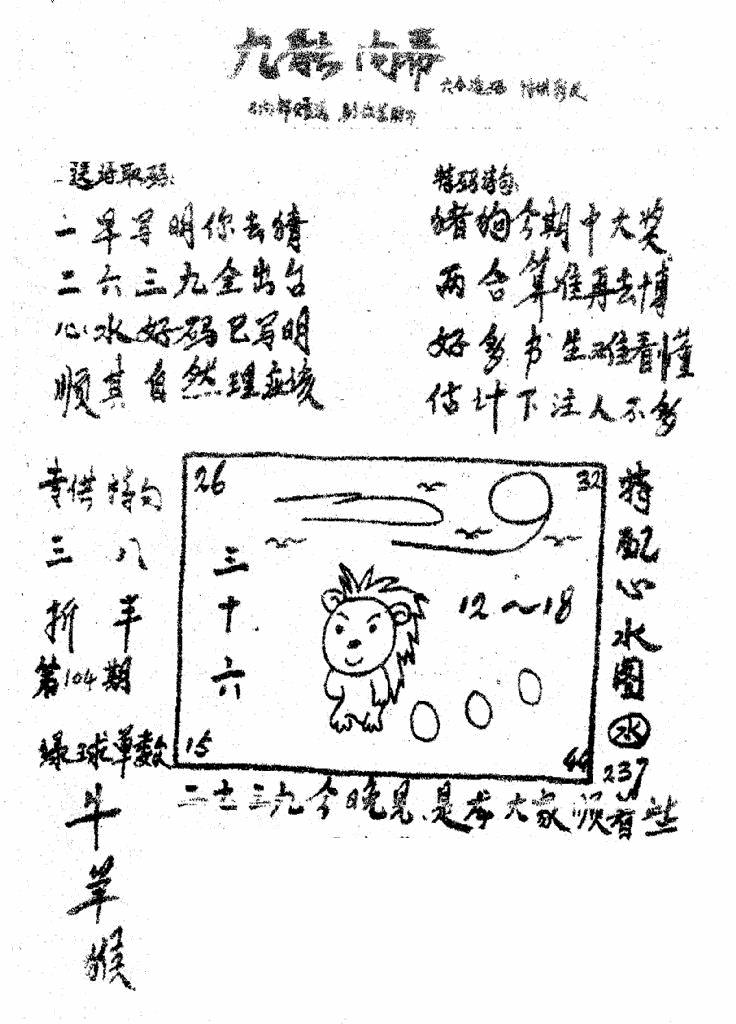 九龍內幕
送诗取码:
一早写明你去猜
二六三九全出台
心水好码已写明
顺其自然理应该
特码诗句:
猪狗今期中大奖
两合算准再去博
好多书生难看懂
估计下注人不多
诗句
三八
折羊
第104期
绿球单数
牛
羊
猴
26
32
三十六
12～18
15
44
特配心水图
水
237
二七三九今晚见.是大家顺着些